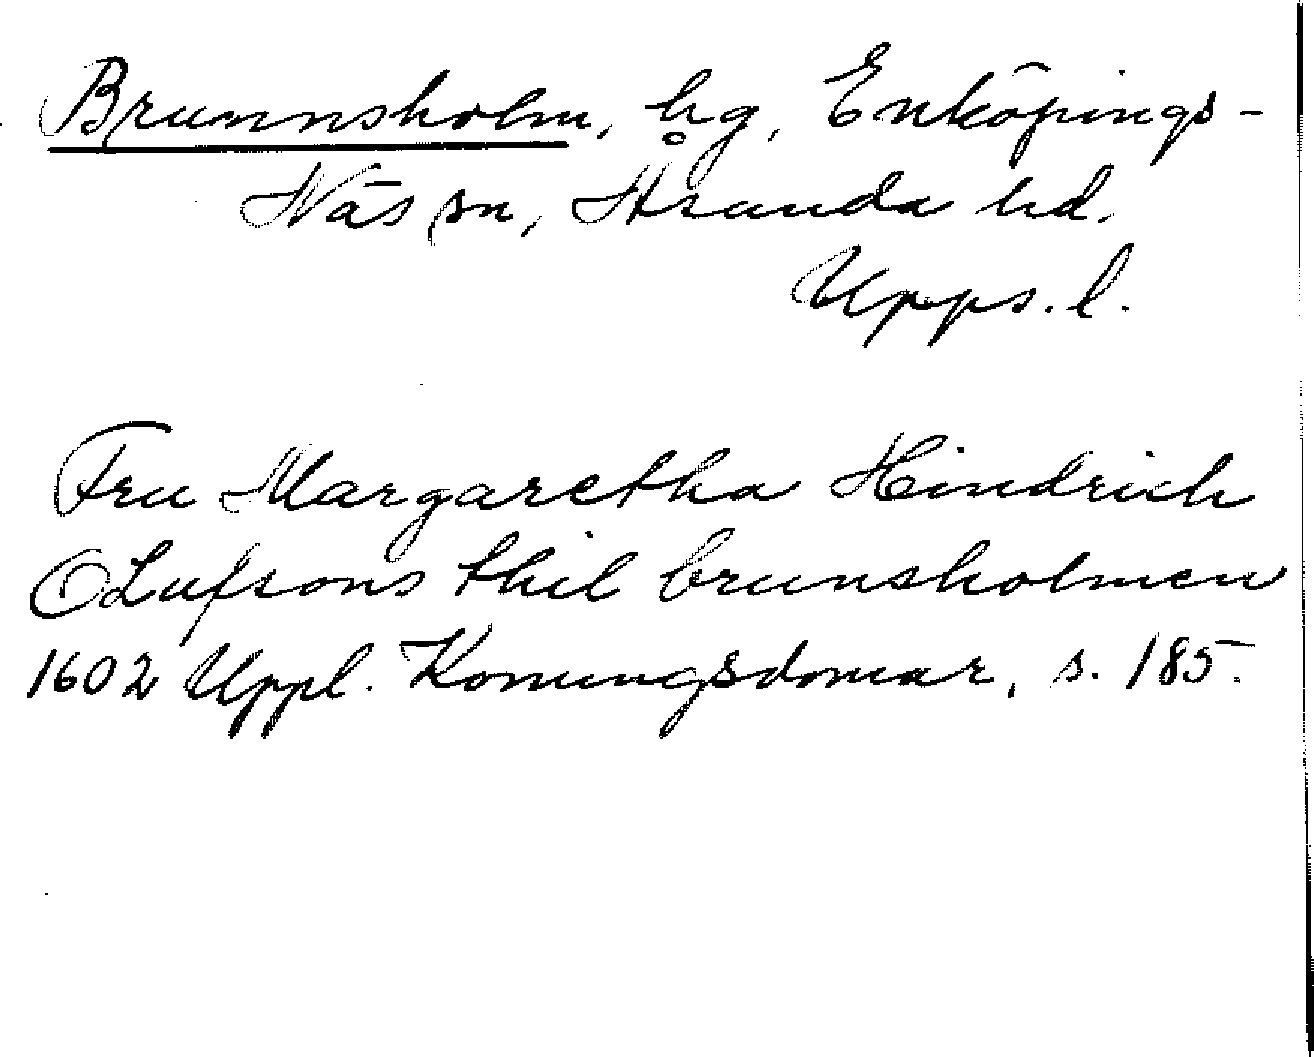 Brunnsholm, hg, Enköpings-
Näs sn, Åsunda hd.
Upps. l.
Fru Margaretha Hindrich
OLufsons thil brunsholmen
1602 Uppl. Konungsdomar, s. 185.